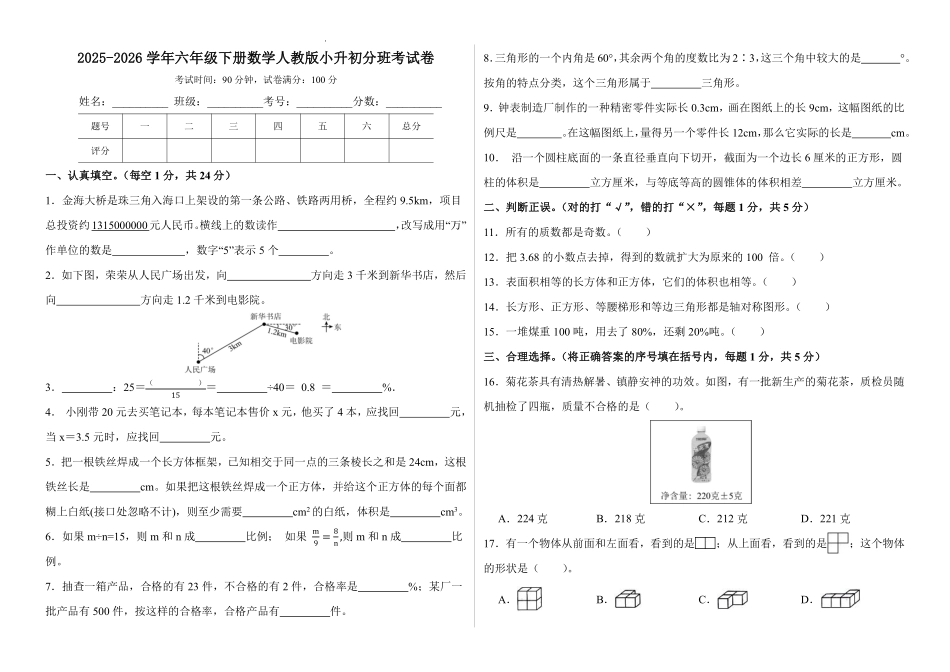 2025-2026 学年六年级下册数学人教版小升初分班考试卷
考试时间：90 分钟，试卷满分：100 分
姓名：__________ 班级：__________考号：__________分数：__________
题号 一 二 三 四 五 六 总分
评分
一、认真填空。（每空 1 分，共 24 分）
1．金海大桥是珠三角入海口上架设的第一条公路、铁路两用桥，全程约 9.5km，项目
总投资约 1315000000 元人民币。横线上的数读作______________________，改写成用“万”
作单位的数是______________，数字“5”表示 5 个__________。
2．如下图，荣荣从人民广场出发，向________________方向走 3 千米到新华书店，然后
向________________方向走 1.2 千米到电影院。
新华书店 北
30° 东
1.2km 电影院
40° 3km
人民广场
3．__________：25＝（ ）/15＝__________÷40＝ 0.8 ＝__________%．
4． 小刚带 20 元去买笔记本，每本笔记本售价 x 元，他买了 4 本，应找回__________元，
当 x＝3.5 元时，应找回__________元。
5．把一根铁丝焊成一个长方体框架，已知相交于同一点的三条棱长之和是 24cm，这根
铁丝长是__________cm。如果把这根铁丝焊成一个正方体，并给这个正方体的每个面都
糊上白纸(接口处忽略不计)，则至少需要__________cm²的白纸，体积是__________cm³。
6．如果 m÷n=15，则 m 和 n 成__________比例； 如果 m/9＝8/n,则 m 和 n 成__________比
例。
7．抽查一箱产品，合格的有 23 件，不合格的有 2 件，合格率是__________%；某厂一
批产品有 500 件，按这样的合格率，合格产品有__________件。
8.三角形的一个内角是 60°,其余两个角的度数比为 2∶3,这三个角中较大的是________°。
按角的特点分类，这个三角形属于__________三角形。
9．钟表制造厂制作的一种精密零件实际长 0.3cm，画在图纸上的长 9cm，这幅图纸的比
例尺是_________。在这幅图纸上,量得另一个零件长 12cm,那么它实际的长是________cm。
10． 沿一个圆柱底面的一条直径垂直向下切开，截面为一个边长 6 厘米的正方形，圆
柱的体积是__________立方厘米，与等底等高的圆锥体的体积相差__________立方厘米。
二、判断正误。（对的打“√”，错的打“×”，每题 1 分，共 5 分）
11．所有的质数都是奇数。（ ）
12．把 3.68 的小数点去掉，得到的数就扩大为原来的 100 倍。（ ）
13．表面积相等的长方体和正方体，它们的体积也相等。（ ）
14．长方形、正方形、等腰梯形和等边三角形都是轴对称图形。（ ）
15．一堆煤重 100 吨，用去了 80%，还剩 20%吨。（ ）
三、合理选择。（将正确答案的序号填在括号内，每题 1 分，共 5 分）
16．菊花茶具有清热解暑、镇静安神的功效。如图，有一批新生产的菊花茶，质检员随
机抽检了四瓶，质量不合格的是（ ）。
净含量：220克±5克
A．224 克 B．218 克 C．212 克 D．221 克
17．有一个物体从前面和左面看，看到的是；从上面看，看到的是；这个物体
的形状是（ ）。
A． B． C． D．